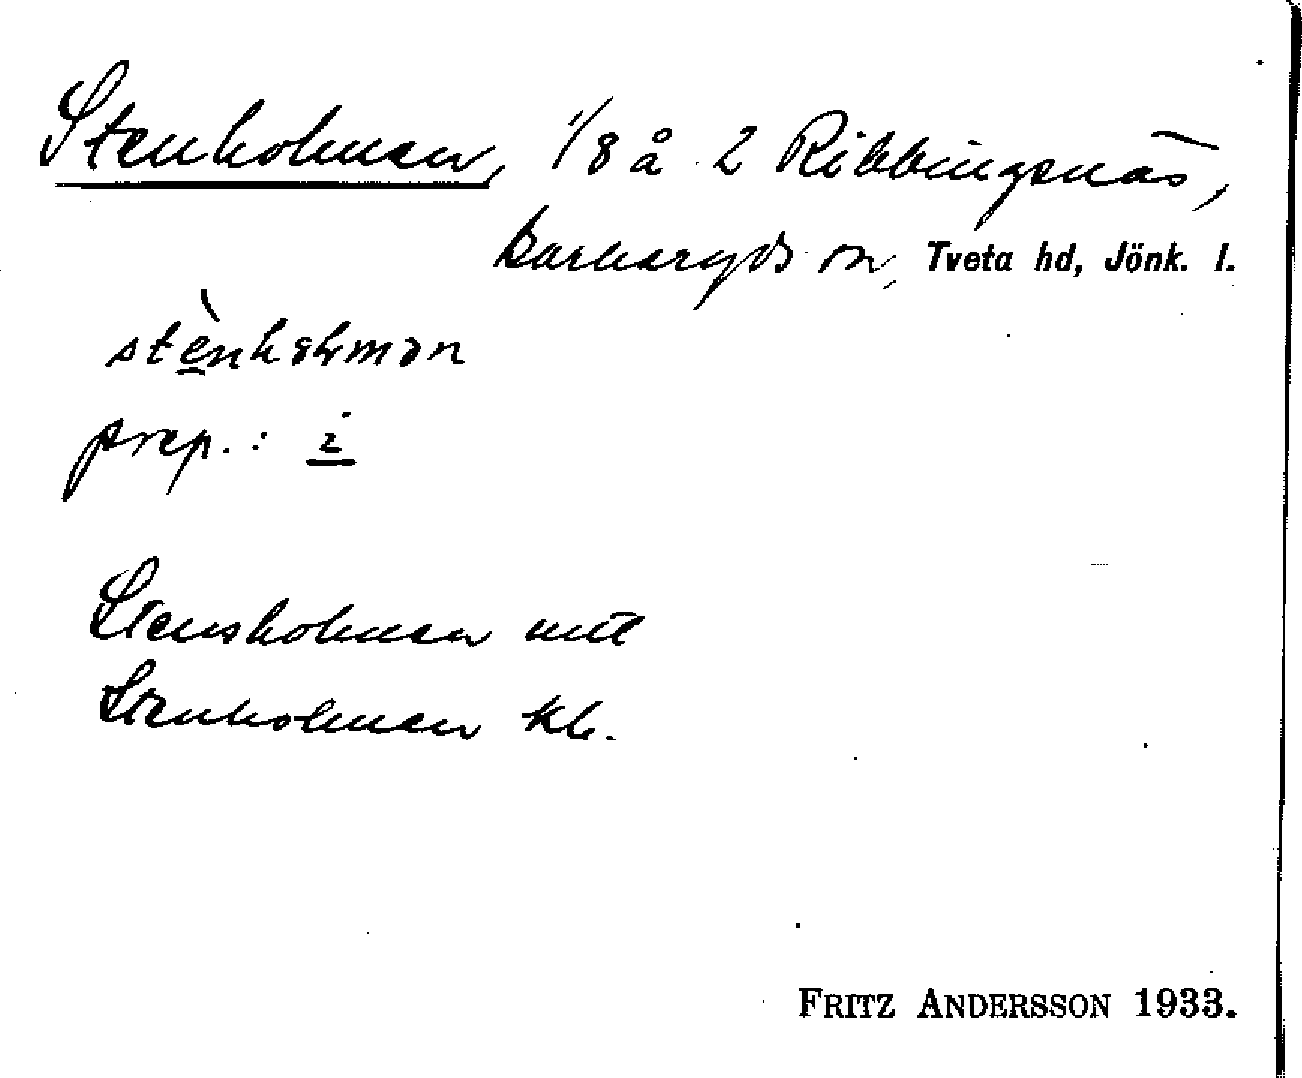 Stenholmen, 1/8 å 2 Ribbingsnäs,
Barkeryds sn, Tveta hd, Jönk. l.
prep.: i
Stensholmen mtl
Stenholmen kb.
FRITZ ANDERSSON 1933.